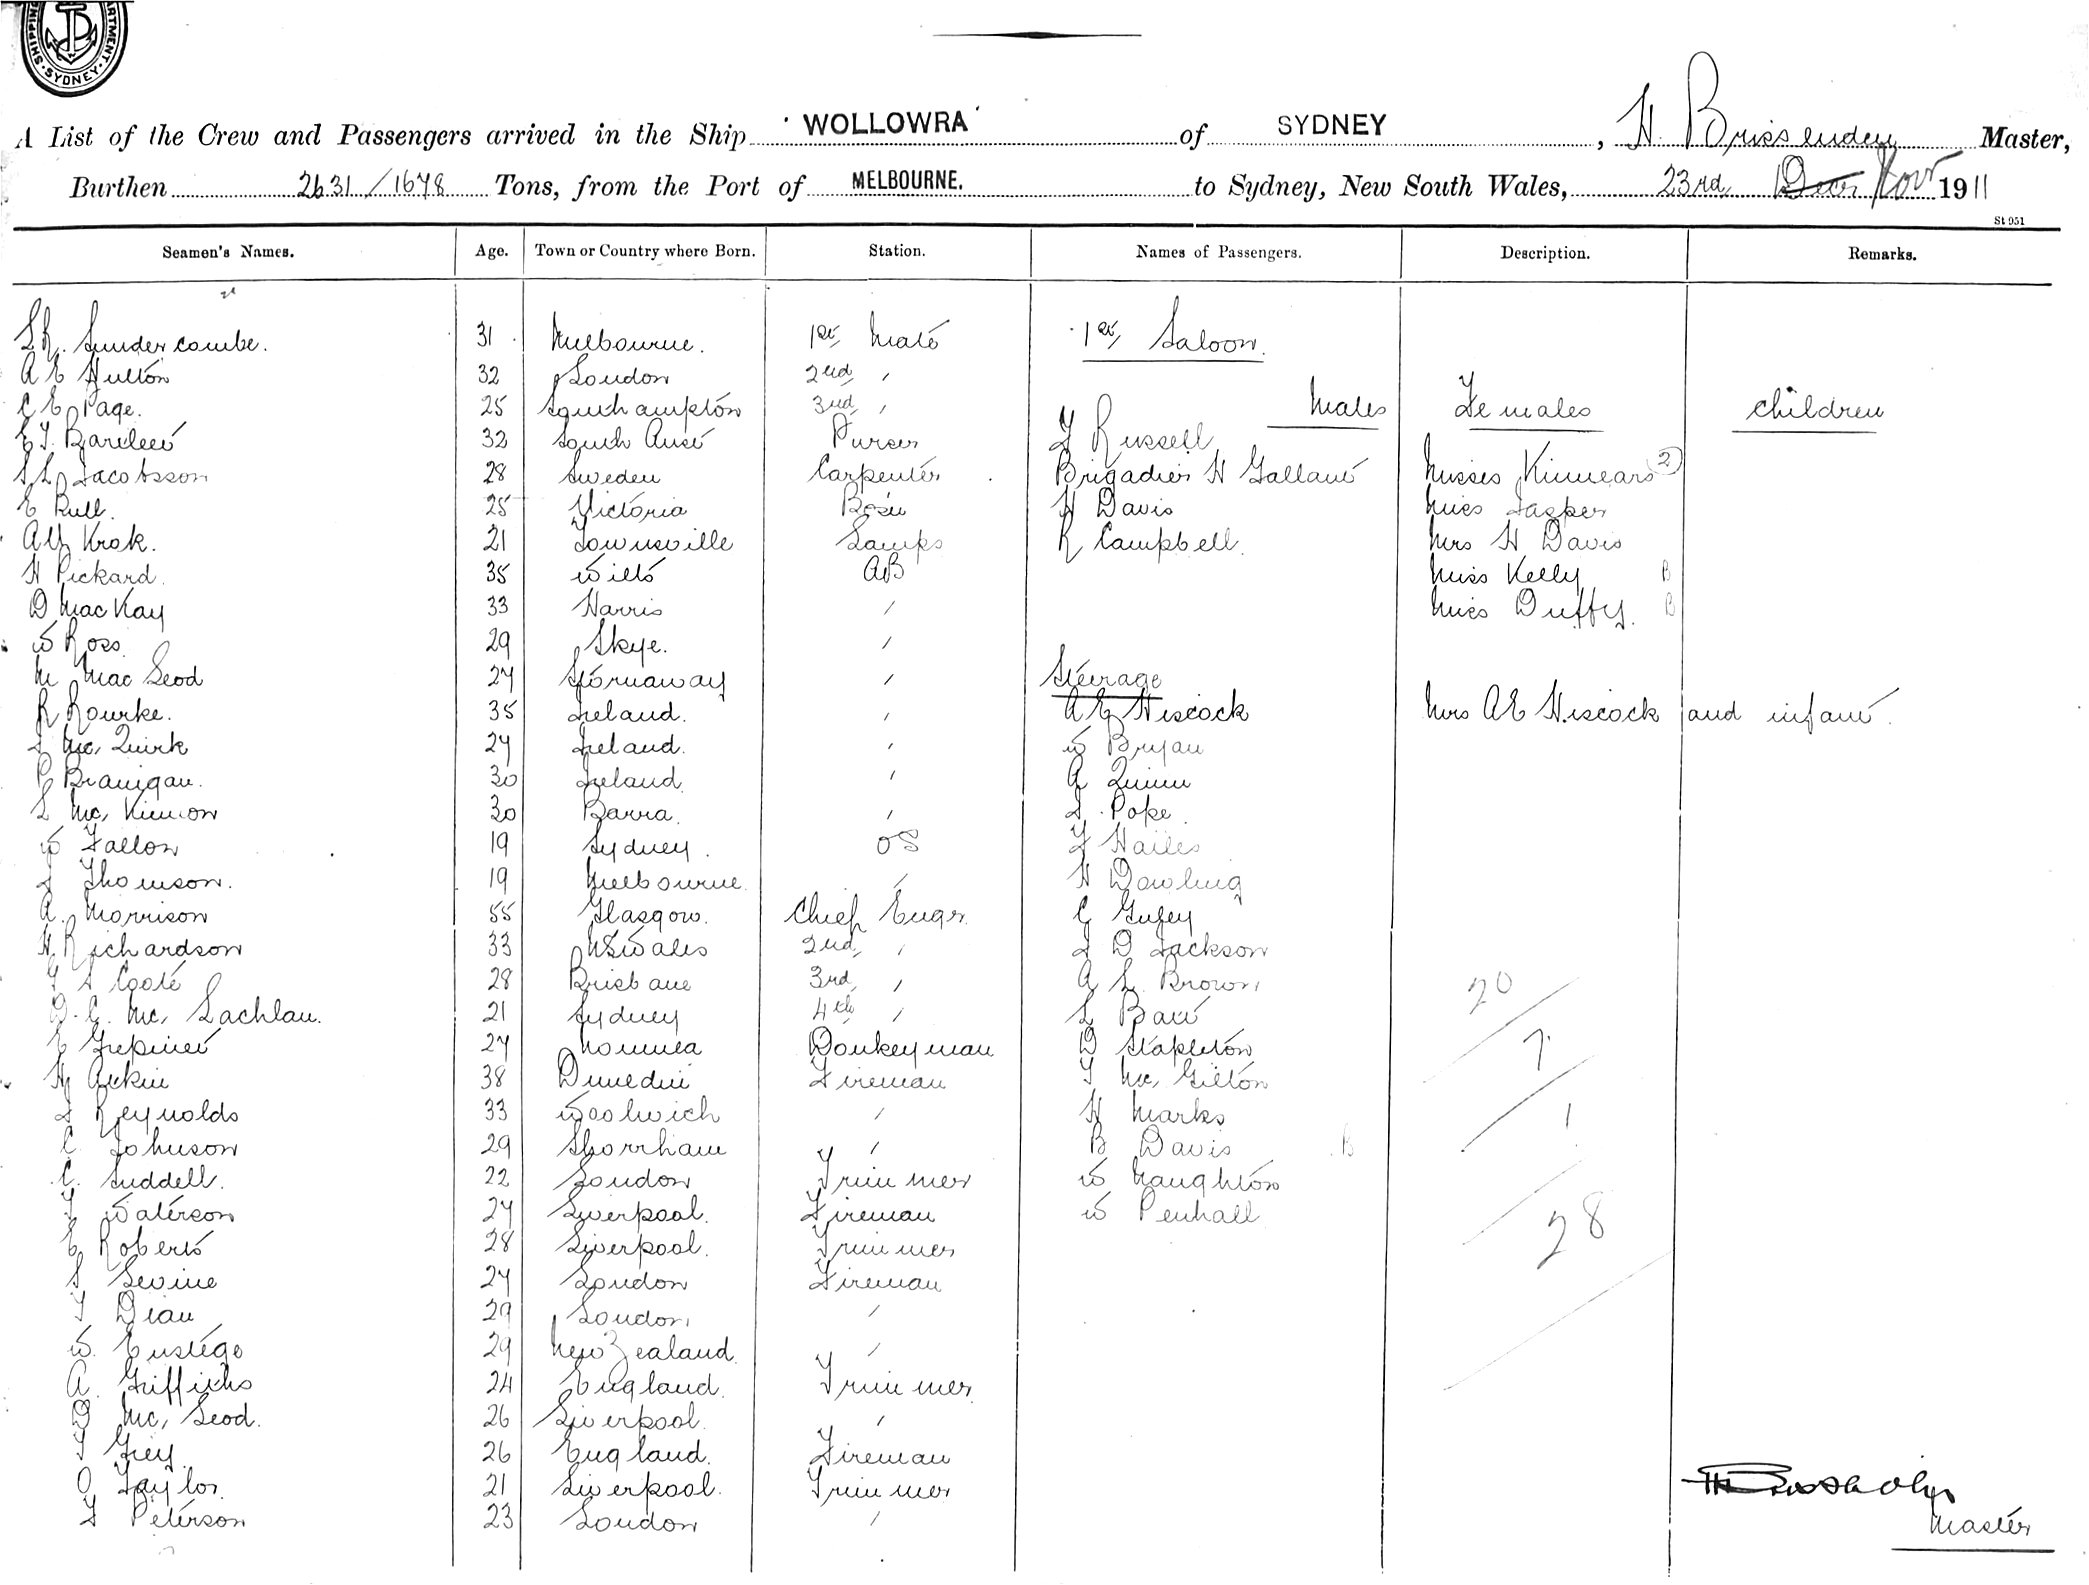 SHIPPING DEPARTMENT SYDNEY
A List of the Crew and Passengers arrived in the Ship 'WOLLOWRA' of SYDNEY, H. Brissenden Master,
Burthen 2631/1678 Tons, from the Port of MELBOURNE. to Sydney, New South Wales, 23rd Decr Novr 1911
St 951
Seamen's Names. Age. Town or Country where Born. Station. Names of Passengers. Description. Remarks.
Sundercombe. 31 Melbourne. 1st Mate 1st Saloon.
A E Hulton 32 London 2nd "
C E Page. 25 Southampton 3rd " Males Females Children
E T. Bartlett 32 South Aust Purser F Russell
S L Jacobsson 28 Sweden Carpenter Brigadier H Gallant Misses Kinnears 2
E Rull. 25 Victoria Bosn H Davis Miss Jasper
Alf Krok. 21 Townsville Lamps R Campbell. Mrs H Davis
H Pickard. 35 Wilts AB Miss Kelly B
D MacKay 33 Harris " Miss Duffy. B
W Ross. 29 Skye. "
M MacLeod 27 Stornaway " Steerage
R Rourke. 35 Ireland. " A E Hiscock Mrs A E Hiscock and infant.
J Mc Quirk 27 Ireland. " W Bryan
P Branigan. 30 Ireland " A Quinn
L Mc Kinnon 30 Barra. " J. Pope.
W Fallon 19 Sydney. OS F Hailes
J Thomson. 19 Melbourne. " H Dowling
A. Morrison 55 Glasgow. Chief Engr. C
H Richardson 33 NSWales 2nd " J D Jackson
S Coote 28 Brisbane 3rd " A L. Brown 20
D. C. Mc, Lachlan. 21 Sydney 4th " L
E 27 Noumea Donkeyman D Stapleton 7
H 38 Dunedin Fireman T Mc, Gilton
J Reynolds 33 Woolwich " H Marks 1
C. Johnson 29 Shorrham " B Davis B
C. Suddell. 22 London Trimmer W Naughton
T Waterson 27 Liverpool. Fireman W Penhall 28
E Roberts 28 Liverpool. Trimmer
S Levine 27 London Fireman
T Dean 29 London "
W. Eustege 29 New Zealand. "
A. Griffiths 24 England. Trimmer
D Mc, Leod. 26 Liverpool. "
T Grey. 26 England. Fireman
O Taylor. 21 Liverpool. Trimmer
J Peterson 23 London "
Master